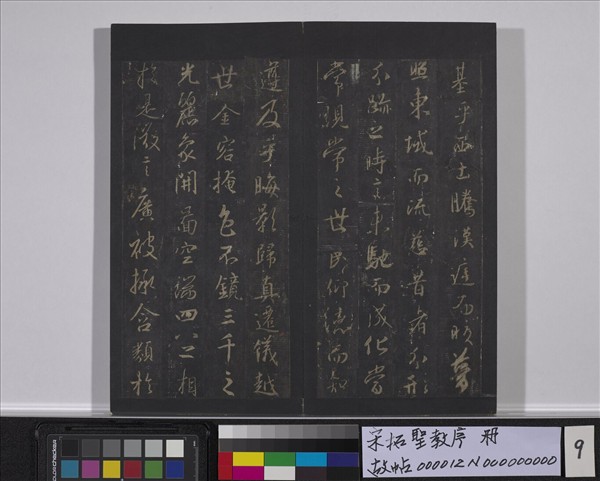 基乎西土騰漢庭而皎夢
照東域而流慈昔者分形
分跡之時言未馳而成化當
常現常之世民仰德而知
遵及乎晦影歸真遷儀越
世金容掩色不鏡三千之
光麗象開圖空端四八之相
於是微言廣被拯含類於
宋拓聖教序 冊
故帖000012N000000000
9